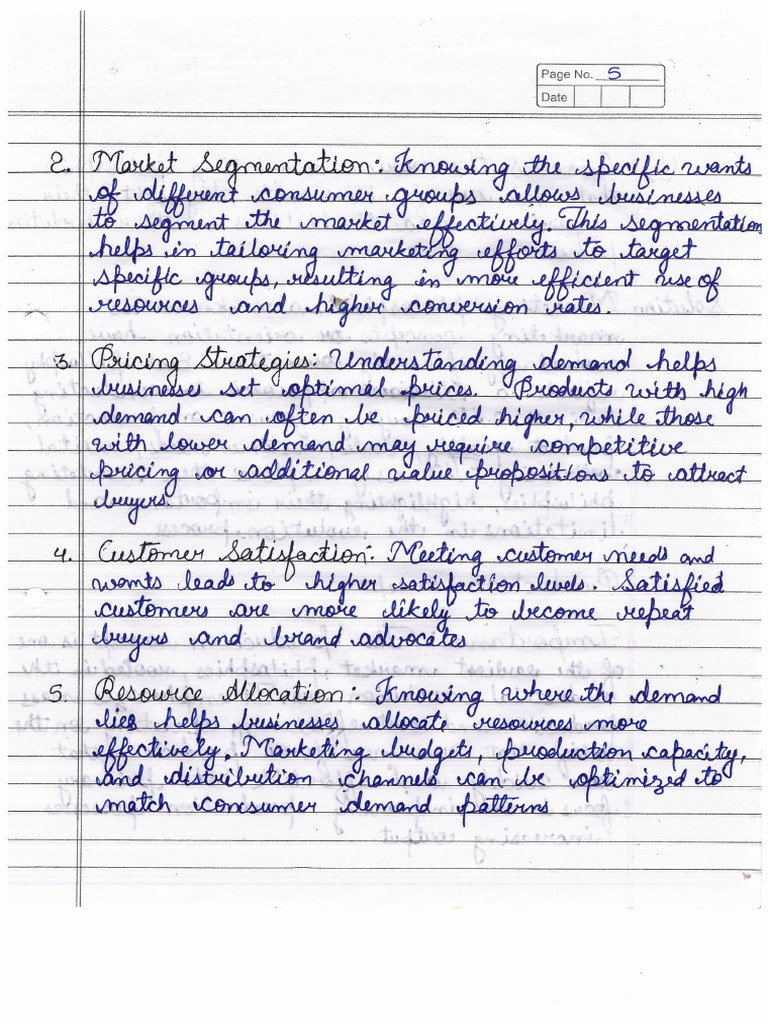 Page No. 5
Date
2. Market Segmentation: Knowing the specific wants
of different consumer groups allows businesses
to segment the market effectively. This segmentation
helps in tailoring marketing efforts to target
specific groups, resulting in more efficient use of
resources and higher conversion rates.
3. Pricing Strategies: Understanding demand helps
businesses set optimal prices. Products with high
demand can often be priced higher, while those
with lower demand may require competitive
pricing or additional value propositions to attract
buyers.
4. Customer Satisfaction: Meeting customer needs and
wants leads to higher satisfaction levels. Satisfied
customers are more likely to become repeat
buyers and brand advocates
5. Resource Allocation: Knowing where the demand
lies helps businesses allocate resources more
effectively. Marketing budgets, production capacity,
and distribution channels can be optimized to
match consumer demand patterns